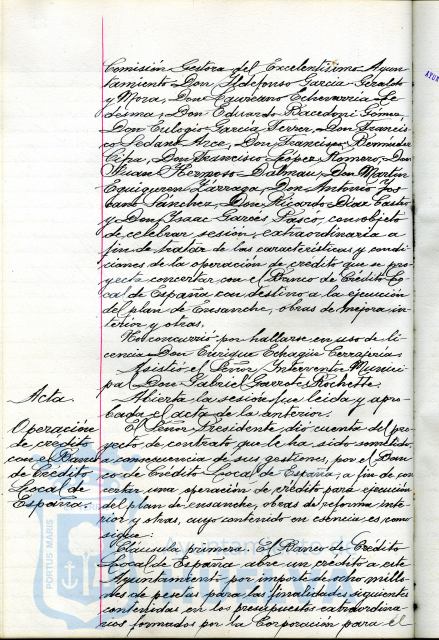 Comisión Gestora del Excelentísimo Ayun-
tamiento Don Ildefonso García Geraldo
y Mora, Don Laureano Echevarría Le-
desma, Don Eduardo Racedoni Gómez,
Don Eulogio García Ferrer, Don Francis-
co Sedano Arce, Don Francisco Bermúdez
Don Francisco López Romero, Don
Hermoso Dalmau, Don Martín
Equiguren Zárraga, Don Antonio
Sánchez, Don Ricardo Díaz Castro
y Don Isaac Garcés Pascó, con objeto
de celebrar sesión extraordinaria a
fin de tratar de las características y condi-
ciones de la operación de crédito que se pro-
yecta concertar con el Banco de Crédito Lo-
cal de España con destino a la ejecución
del plan de Ensanche, obras de mejora in-
terior y otras.
No concurrió por hallarse en uso de li-
cencia Don Enrique Echagüe Cerraperia
Asistió el Señor Interventor Munici-
pal Don Gabriel Garrote Rochette.
Abierta la sesión fue leída y apro-
bada el acta de la anterior.
Acta.
Operación
de crédito
con el Banco
de Crédito
Local de
España.
El Señor Presidente dió cuenta del pro-
yecto de contrato que le ha sido
a consecuencia de sus gestiones, por el Ban-
co de Crédito Local de España, a fin de con-
certar una operación de crédito para ejecución
del plan de ensanche, obras de reforma inte-
rior y otras, cuyo contenido en esencia es como
sigue:
Cláusula primera. El Banco de Crédito
Local de España abre un crédito a este
Ayuntamiento por importe de ocho millo-
nes de pesetas para las finalidades siguientes
contenidas en los presupuestos extraordina-
rios formados por la Corporación para el
PORTUS MARIS
Ayuntamiento de